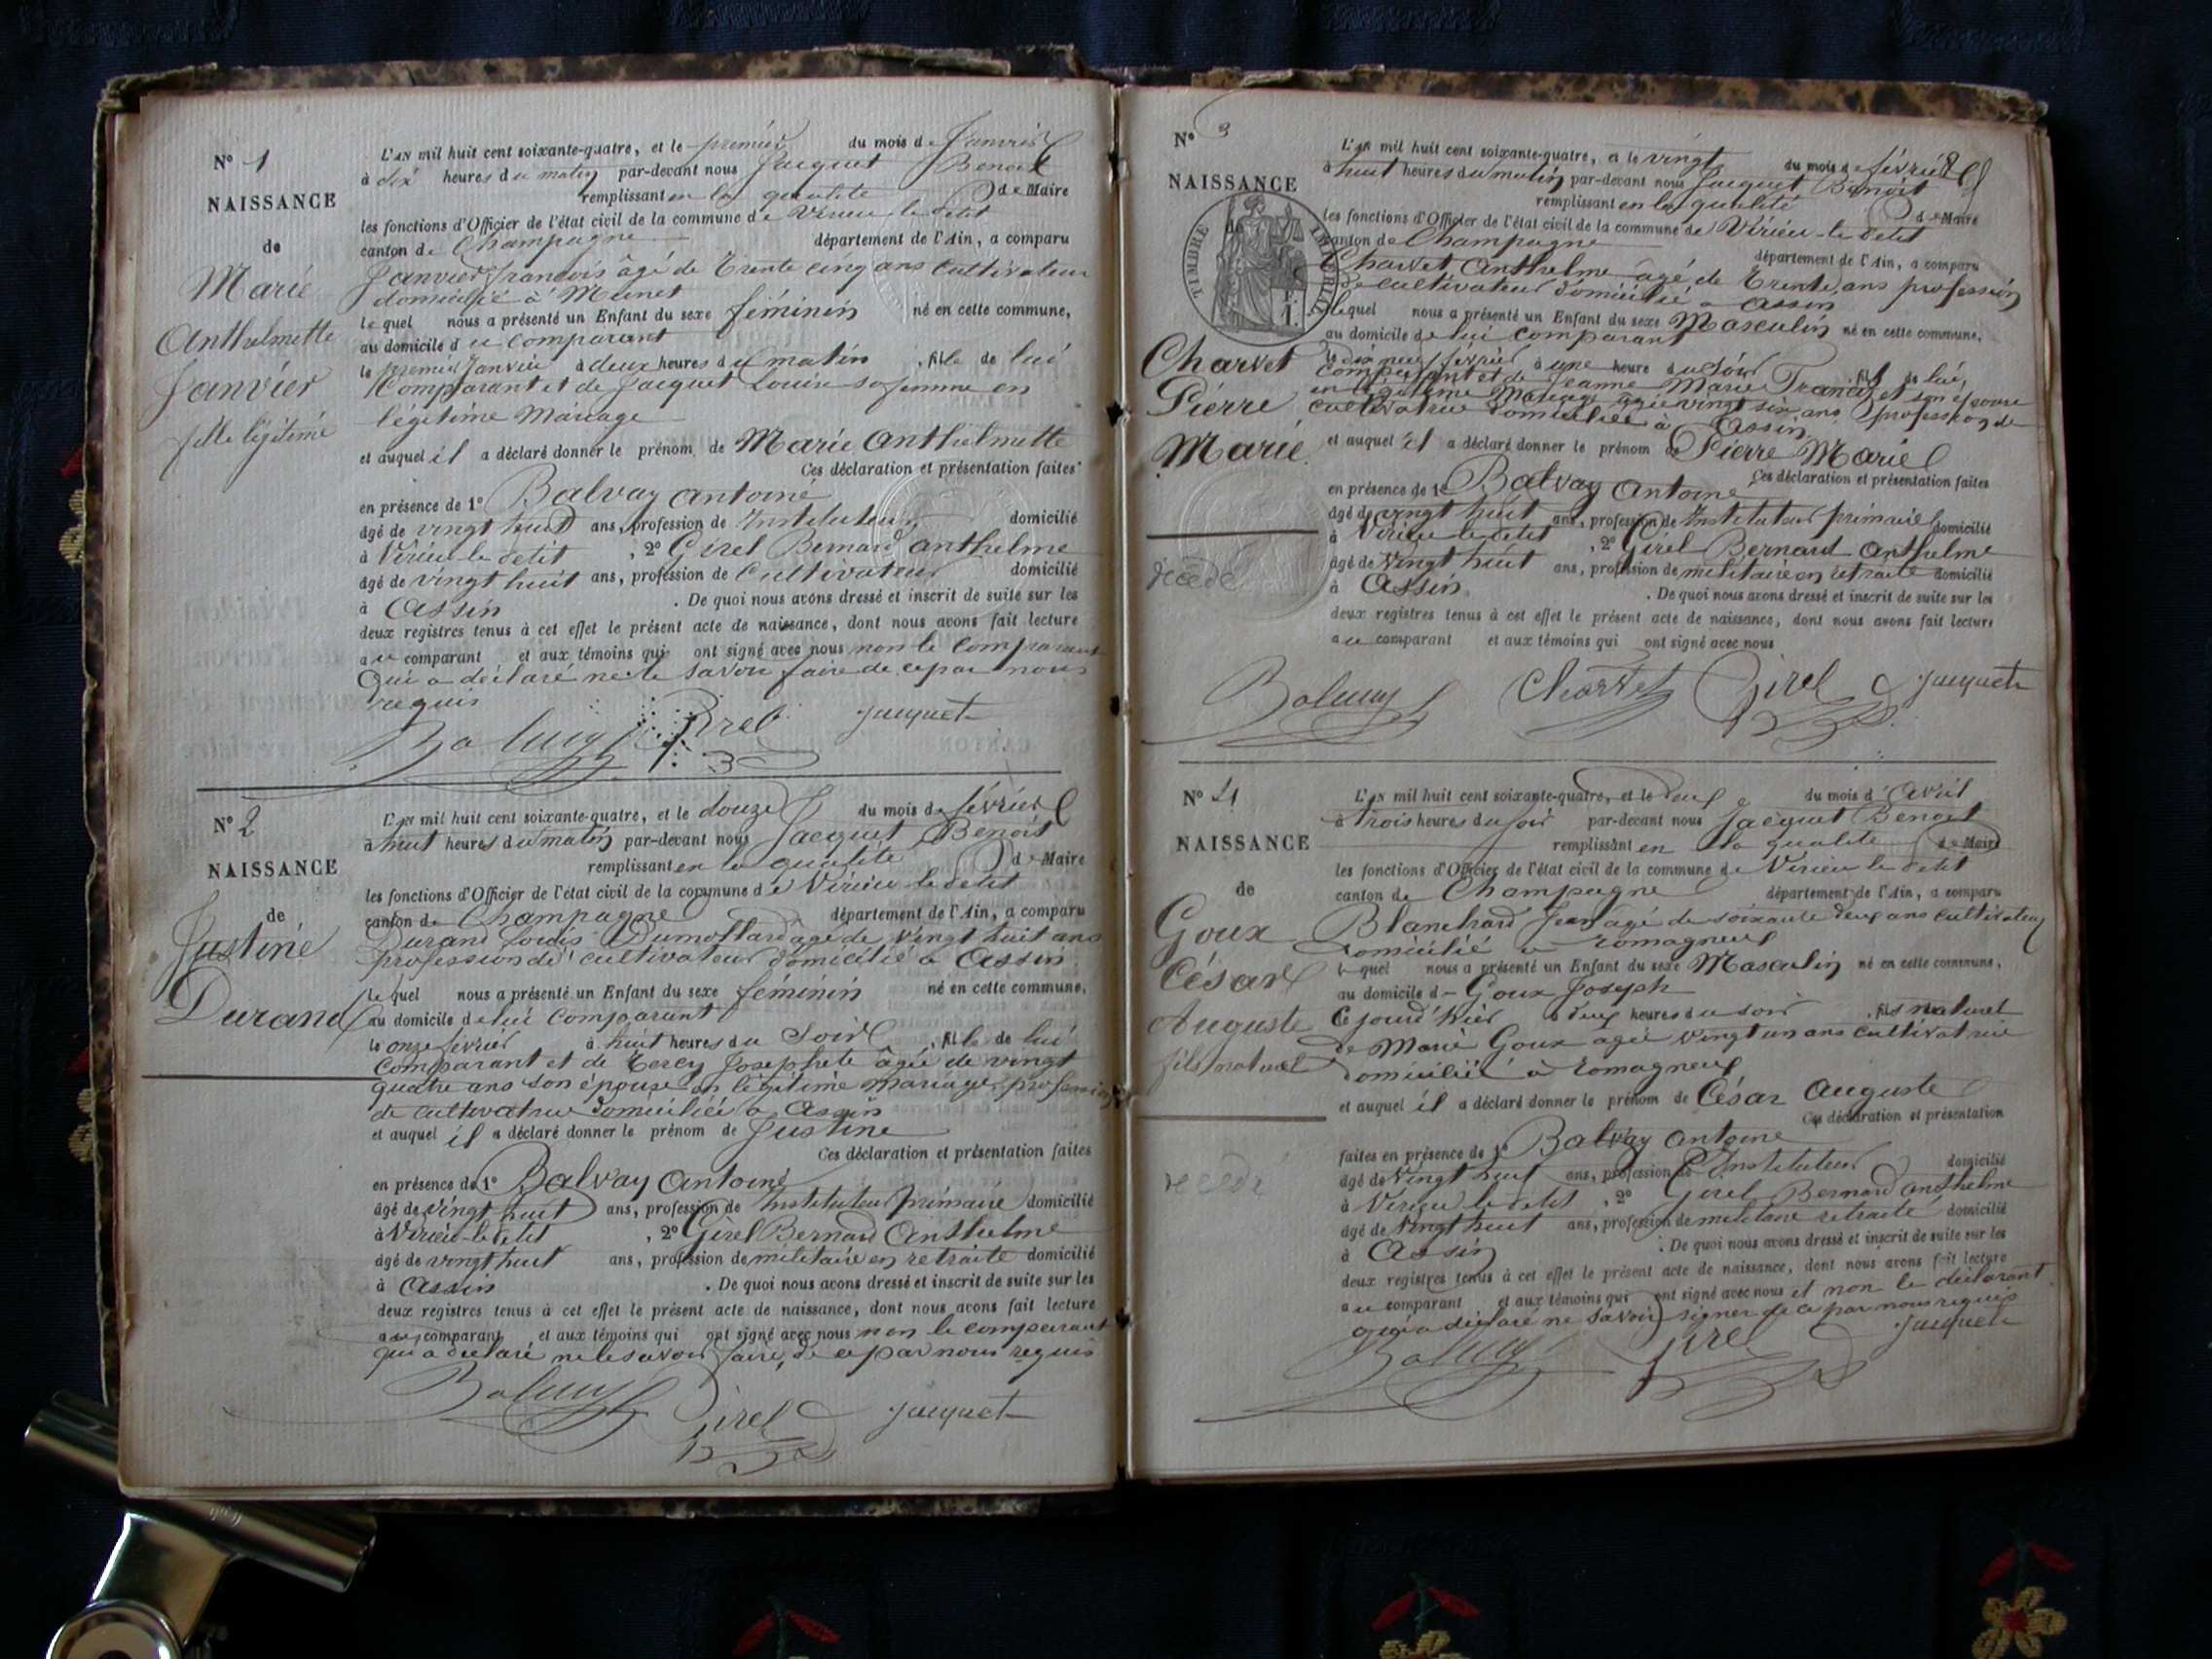 N° 1
NAISSANCE
de
Marie
Anthelmette
Janvier
fille légitime
L'AN mil huit cent soixante-quatre, et le premier du mois de Janvier
à dix heures du matin par-devant nous Jacquet Benoit
remplissant en la qualité de Maire
les fonctions d'Officier de l'état civil de la commune de Virieu le Petit
canton de Champagne département de l'Ain, a comparu
Janvier françois âgé de Trente cinq ans cultivateur
domicilié à Munet
lequel nous a présenté un Enfant du sexe féminin né en cette commune,
au domicile du comparant
le premier Janvier à deux heures du matin, fille de lui
Comparant et de Jacquet Louise sa femme en
légitime Mariage
et auquel il a déclaré donner le prénom de Marie Anthelmette
Ces déclaration et présentation faites
en présence de 1° Balvay Antoine
âgé de vingt huit ans, profession de Instituteur domicilié
à Virieu le Petit, 2° Girel Bernard Anthelme
âgé de vingt huit ans, profession de Cultivateur domicilié
à Assin. De quoi nous avons dressé et inscrit de suite sur les
deux registres tenus à cet effet le présent acte de naissance, dont nous avons fait lecture
au comparant et aux témoins qui ont signé avec nous non le Comparant
Qui a déclaré ne le savoir faire de ce par nous
requis
Balvay Girel Jacquet
N° 2
NAISSANCE
de
Justine
Durand
L'AN mil huit cent soixante-quatre, et le douze du mois de février
à huit heures du matin par-devant nous Jacquet Benoit
remplissant en la qualité de Maire
les fonctions d'Officier de l'état civil de la commune de Virieu le Petit
canton de Champagne département de l'Ain, a comparu
Durand Louis Dumollard âgé de vingt huit ans
profession de cultivateur domicilié à Assin
lequel nous a présenté un Enfant du sexe féminin né en cette commune,
au domicile de lui Comparant
le onze février à huit heures du Soir, fille de lui
Comparant et de Tercy Josephete âgée de vingt
quatre ans son épouse en légitime mariage, profession
de cultivatrice domiciliée à Assin
et auquel il a déclaré donner le prénom de Justine
Ces déclaration et présentation faites
en présence de 1° Balvay Antoine
âgé de vingt huit ans, profession de Instituteur primaire domicilié
à Virieu-le-Petit, 2° Girel Bernard Anthelme
âgé de vingt huit ans, profession de militaire en retraite domicilié
à Assin. De quoi nous avons dressé et inscrit de suite sur les
deux registres tenus à cet effet le présent acte de naissance, dont nous avons fait lecture
au comparant et aux témoins qui ont signé avec nous non le comparant
qui a déclaré ne le savoir faire, de ce par nous requis
Balvay Girel Jacquet
N° 3
NAISSANCE
de
TIMBRE IMPÉRIAL
Charvet
Pierre
Marie
décédé
L'AN mil huit cent soixante-quatre, et le vingt du mois de février
à huit heures du matin par-devant nous Jacquet Benoit
remplissant en la qualité de Maire
les fonctions d'Officier de l'état civil de la commune de Virieu-le-Petit
canton de Champagne département de l'Ain, a comparu
Charvet Anthelme âgé de Trente ans profession
de cultivateur domicilié à Assin
lequel nous a présenté un Enfant du sexe Masculin né en cette commune,
au domicile de lui comparant
le dix neuf février à une heure du soir, fils de lui
comparant et de Jeanne Marie et son épouse
en légitime Mariage âgée vingt six ans profession de
cultivatrice domiciliée à Assin
et auquel il a déclaré donner le prénom de Pierre Marie
Ces déclaration et présentation faites
en présence de 1° Balvay Antoine
âgé de vingt huit ans, profession de Instituteur primaire domicilié
à Virieu le Petit, 2° Girel Bernard Anthelme
âgé de vingt huit ans, profession de militaire en retraite domicilié
à Assin. De quoi nous avons dressé et inscrit de suite sur les
deux registres tenus à cet effet le présent acte de naissance, dont nous avons fait lecture
au comparant et aux témoins qui ont signé avec nous
Balvay Charvet Girel Jacquet
N° 4
NAISSANCE
de
Goux
César
Auguste
fils naturel
décédé
L'AN mil huit cent soixante-quatre, et le deux du mois d'Avril
à trois heures du soir par-devant nous Jacquet Benoit
remplissant en la qualité de Maire
les fonctions d'Officier de l'état civil de la commune de Virieu le Petit
canton de Champagne département de l'Ain, a comparu
Blanchard Jean âgé de soixante deux ans cultivateur
Domicilié à romagneux
lequel nous a présenté un Enfant du sexe Masculin né en cette commune,
au domicile d- Goux Joseph
Ce jourd'hier à deux heures du soir, fils naturel
de Marie Goux agée vingt un ans cultivatrice
Domiciliée à romagneux
et auquel il a déclaré donner le prénom de César Auguste
Ces déclaration et présentation
faites en présence de 1° Balvay Antoine
âgé de vingt huit ans, profession d'Instituteur domicilié
à Virieu le Petit, 2° Girel Bernard Anthelme
âgé de vingt huit ans, profession de militaire retraité domicilié
à Assin. De quoi nous avons dressé et inscrit de suite sur les
deux registres tenus à cet effet le présent acte de naissance, dont nous avons fait lecture
au comparant et aux témoins qui ont signé avec nous et non le déclarant
qui a déclaré ne savoir signer de ce par nous requis
Balvay Girel Jacquet